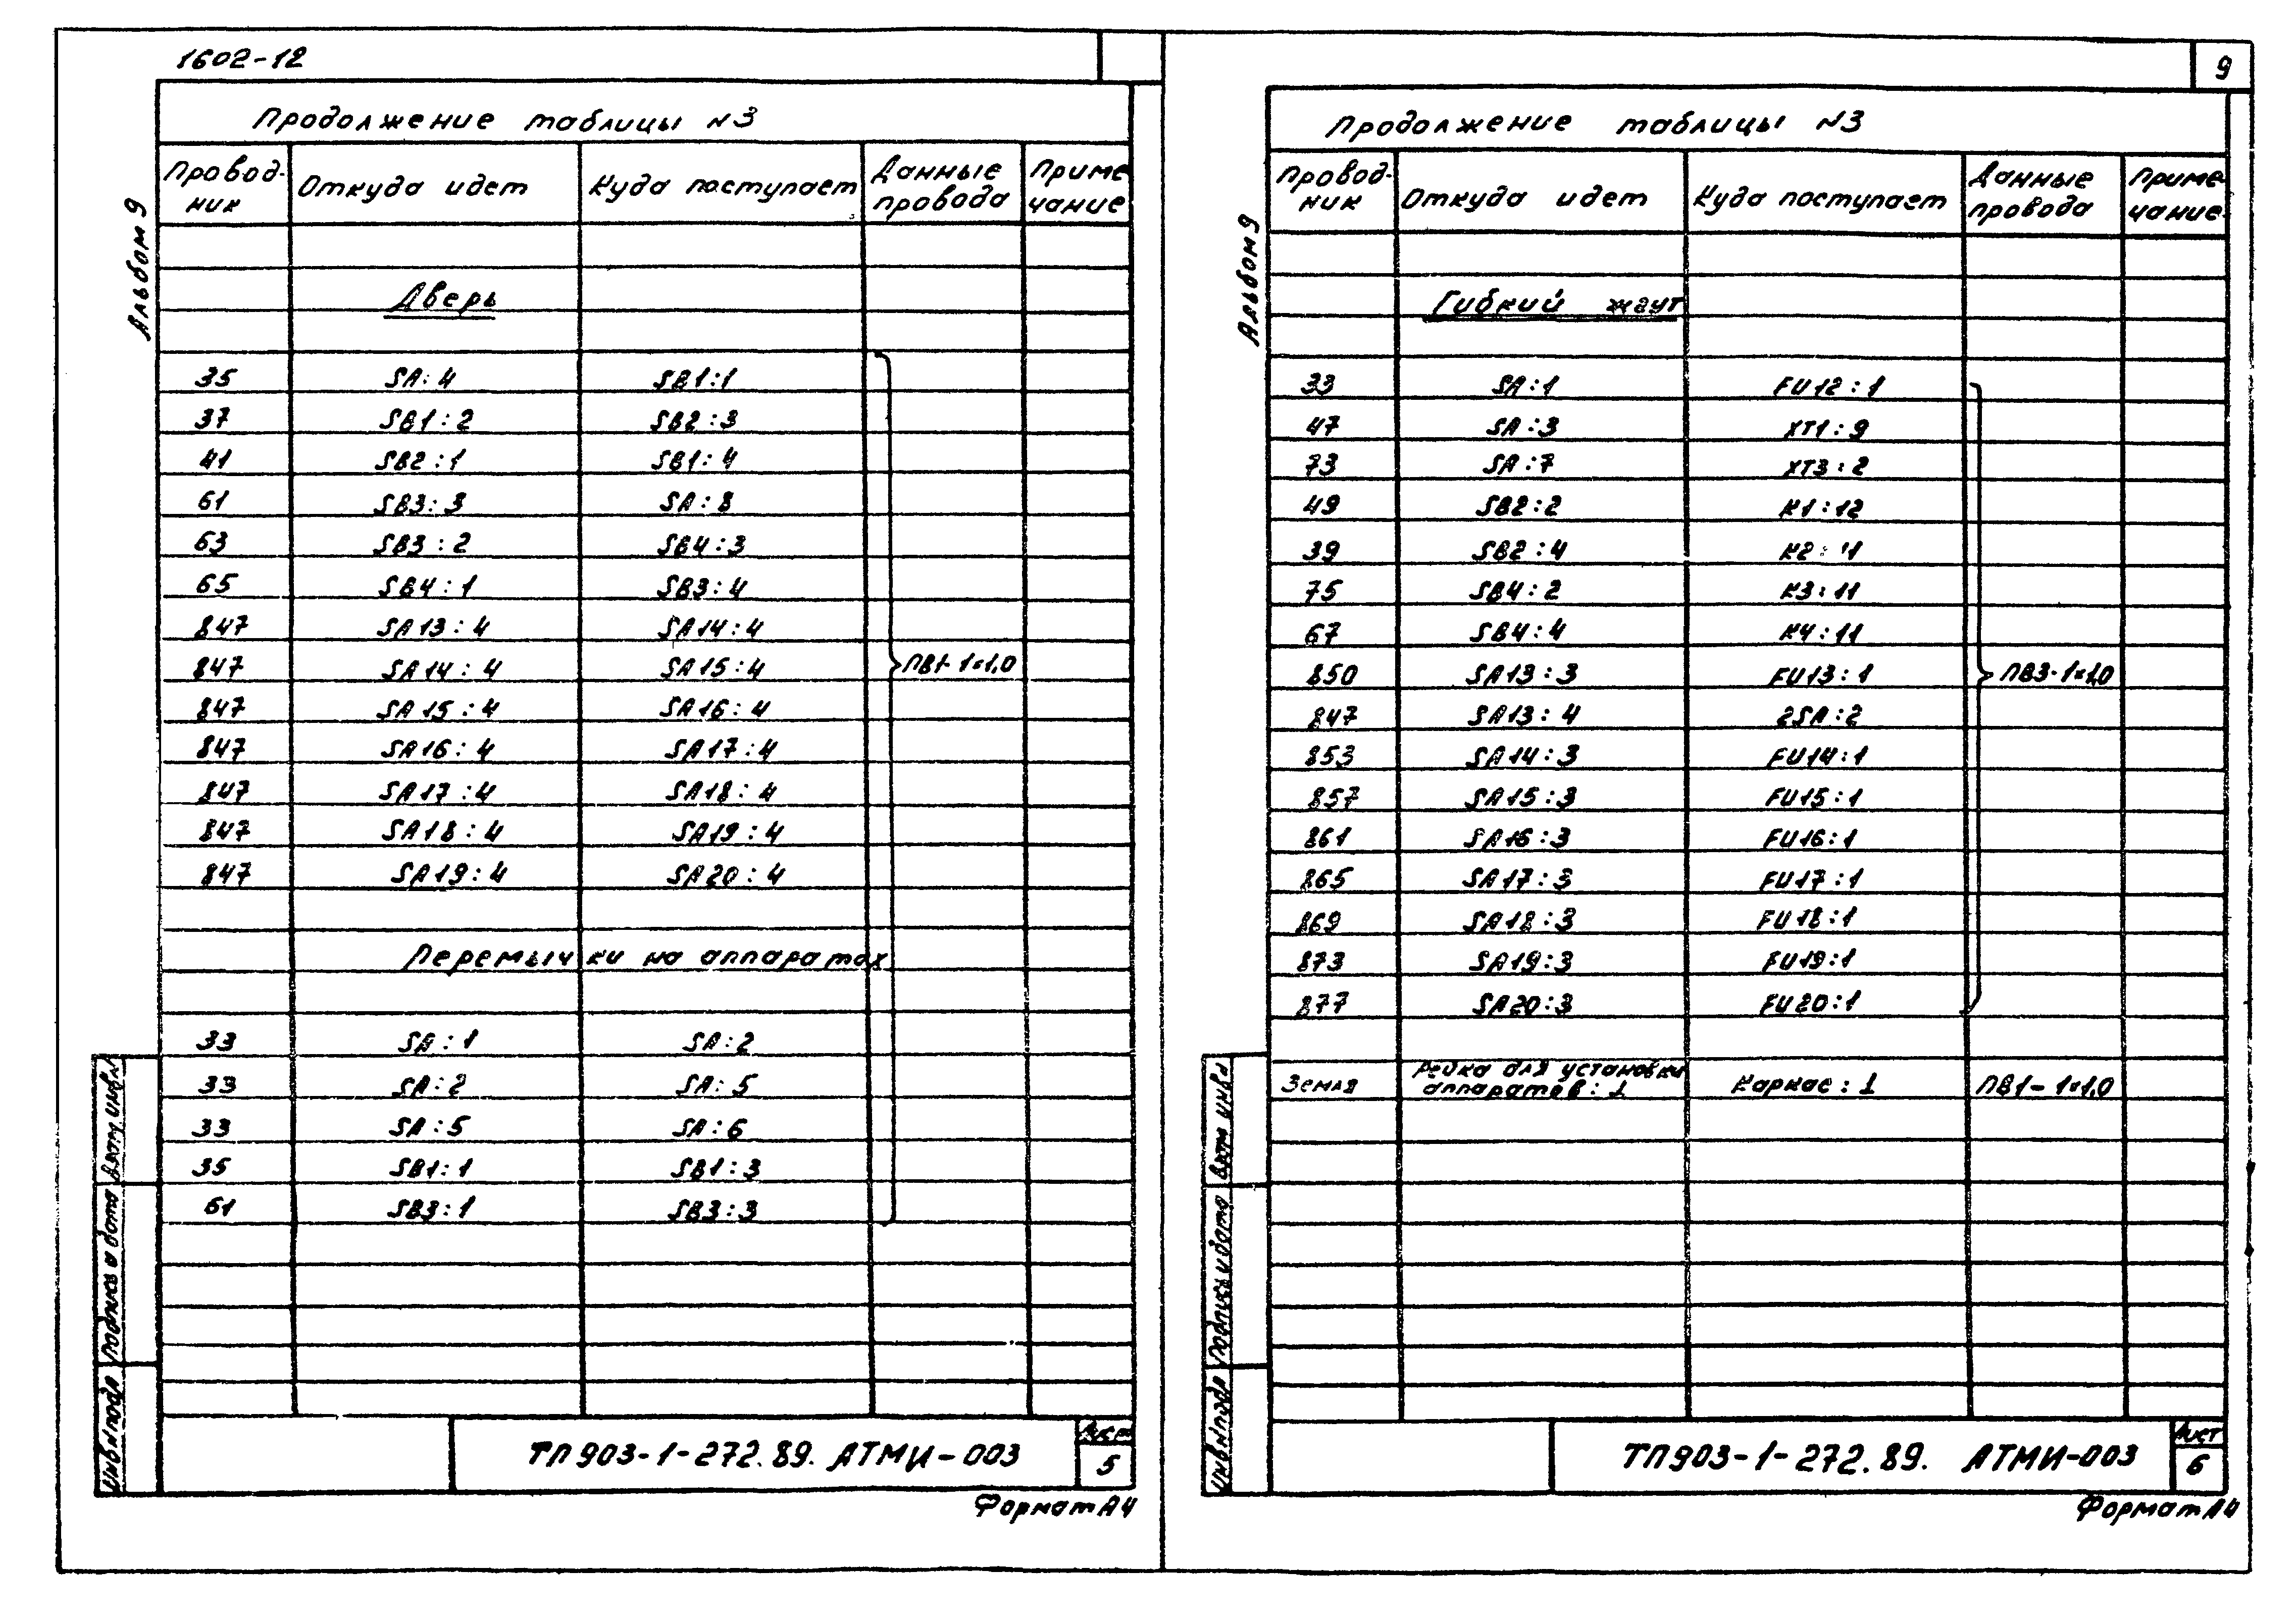 1602-12
Альбом 9
Продолжение таблицы №3
Провод- Откуда идет Куда поступает Данные Приме
ник провода чание
Дверь
35 SA:4 SB1:1
37 SB1:2 SB2:3
41 SB2:1 SB1:4
61 SB3:3 SA:8
63 SB3:2 SB4:3
65 SB4:1 SB3:4
847 SA13:4 SA14:4
847 SA14:4 SA15:4 ПВ1-1×1,0
847 SA15:4 SA16:4
847 SA16:4 SA17:4
847 SA17:4 SA18:4
847 SA18:4 SA19:4
847 SA19:4 SA20:4
Перемычки на аппаратах
33 SA:1 SA:2
33 SA:2 SA:5
33 SA:5 SA:6
35 SB1:1 SB1:3
61 SB3:1 SB3:3
Взам. инв.№
Подпись и дата
Инв.№подл
ТП903-1-272.89. АТМИ-003
Лист
5
Формат А4
9
Альбом 9
Продолжение таблицы №3
Провод- Откуда идет Куда поступает Данные Приме-
ник провода чание
Гибкий жгут
33 SA:1 FU12:1
47 SA:3 XT1:9
73 SA:7 XT3:2
49 SB2:2 K1:12
39 SB2:4 K2:11
75 SB4:2 K3:11
67 SB4:4 K4:11
850 SA13:3 FU13:1 ПВ3-1×1,0
847 SA13:4 2SA:2
853 SA14:3 FU14:1
857 SA15:3 FU15:1
861 SA16:3 FU16:1
865 SA17:3 FU17:1
869 SA18:3 FU18:1
873 SA19:3 FU19:1
877 SA20:3 FU20:1
Рейка для установки
Земля аппаратов:⊥ Каркас:⊥ ПВ1-1×1,0
Взам инв№
Подпись и дата
Инв№подл
ТП903-1-272.89. АТМИ-003
Лист
6
Формат А4